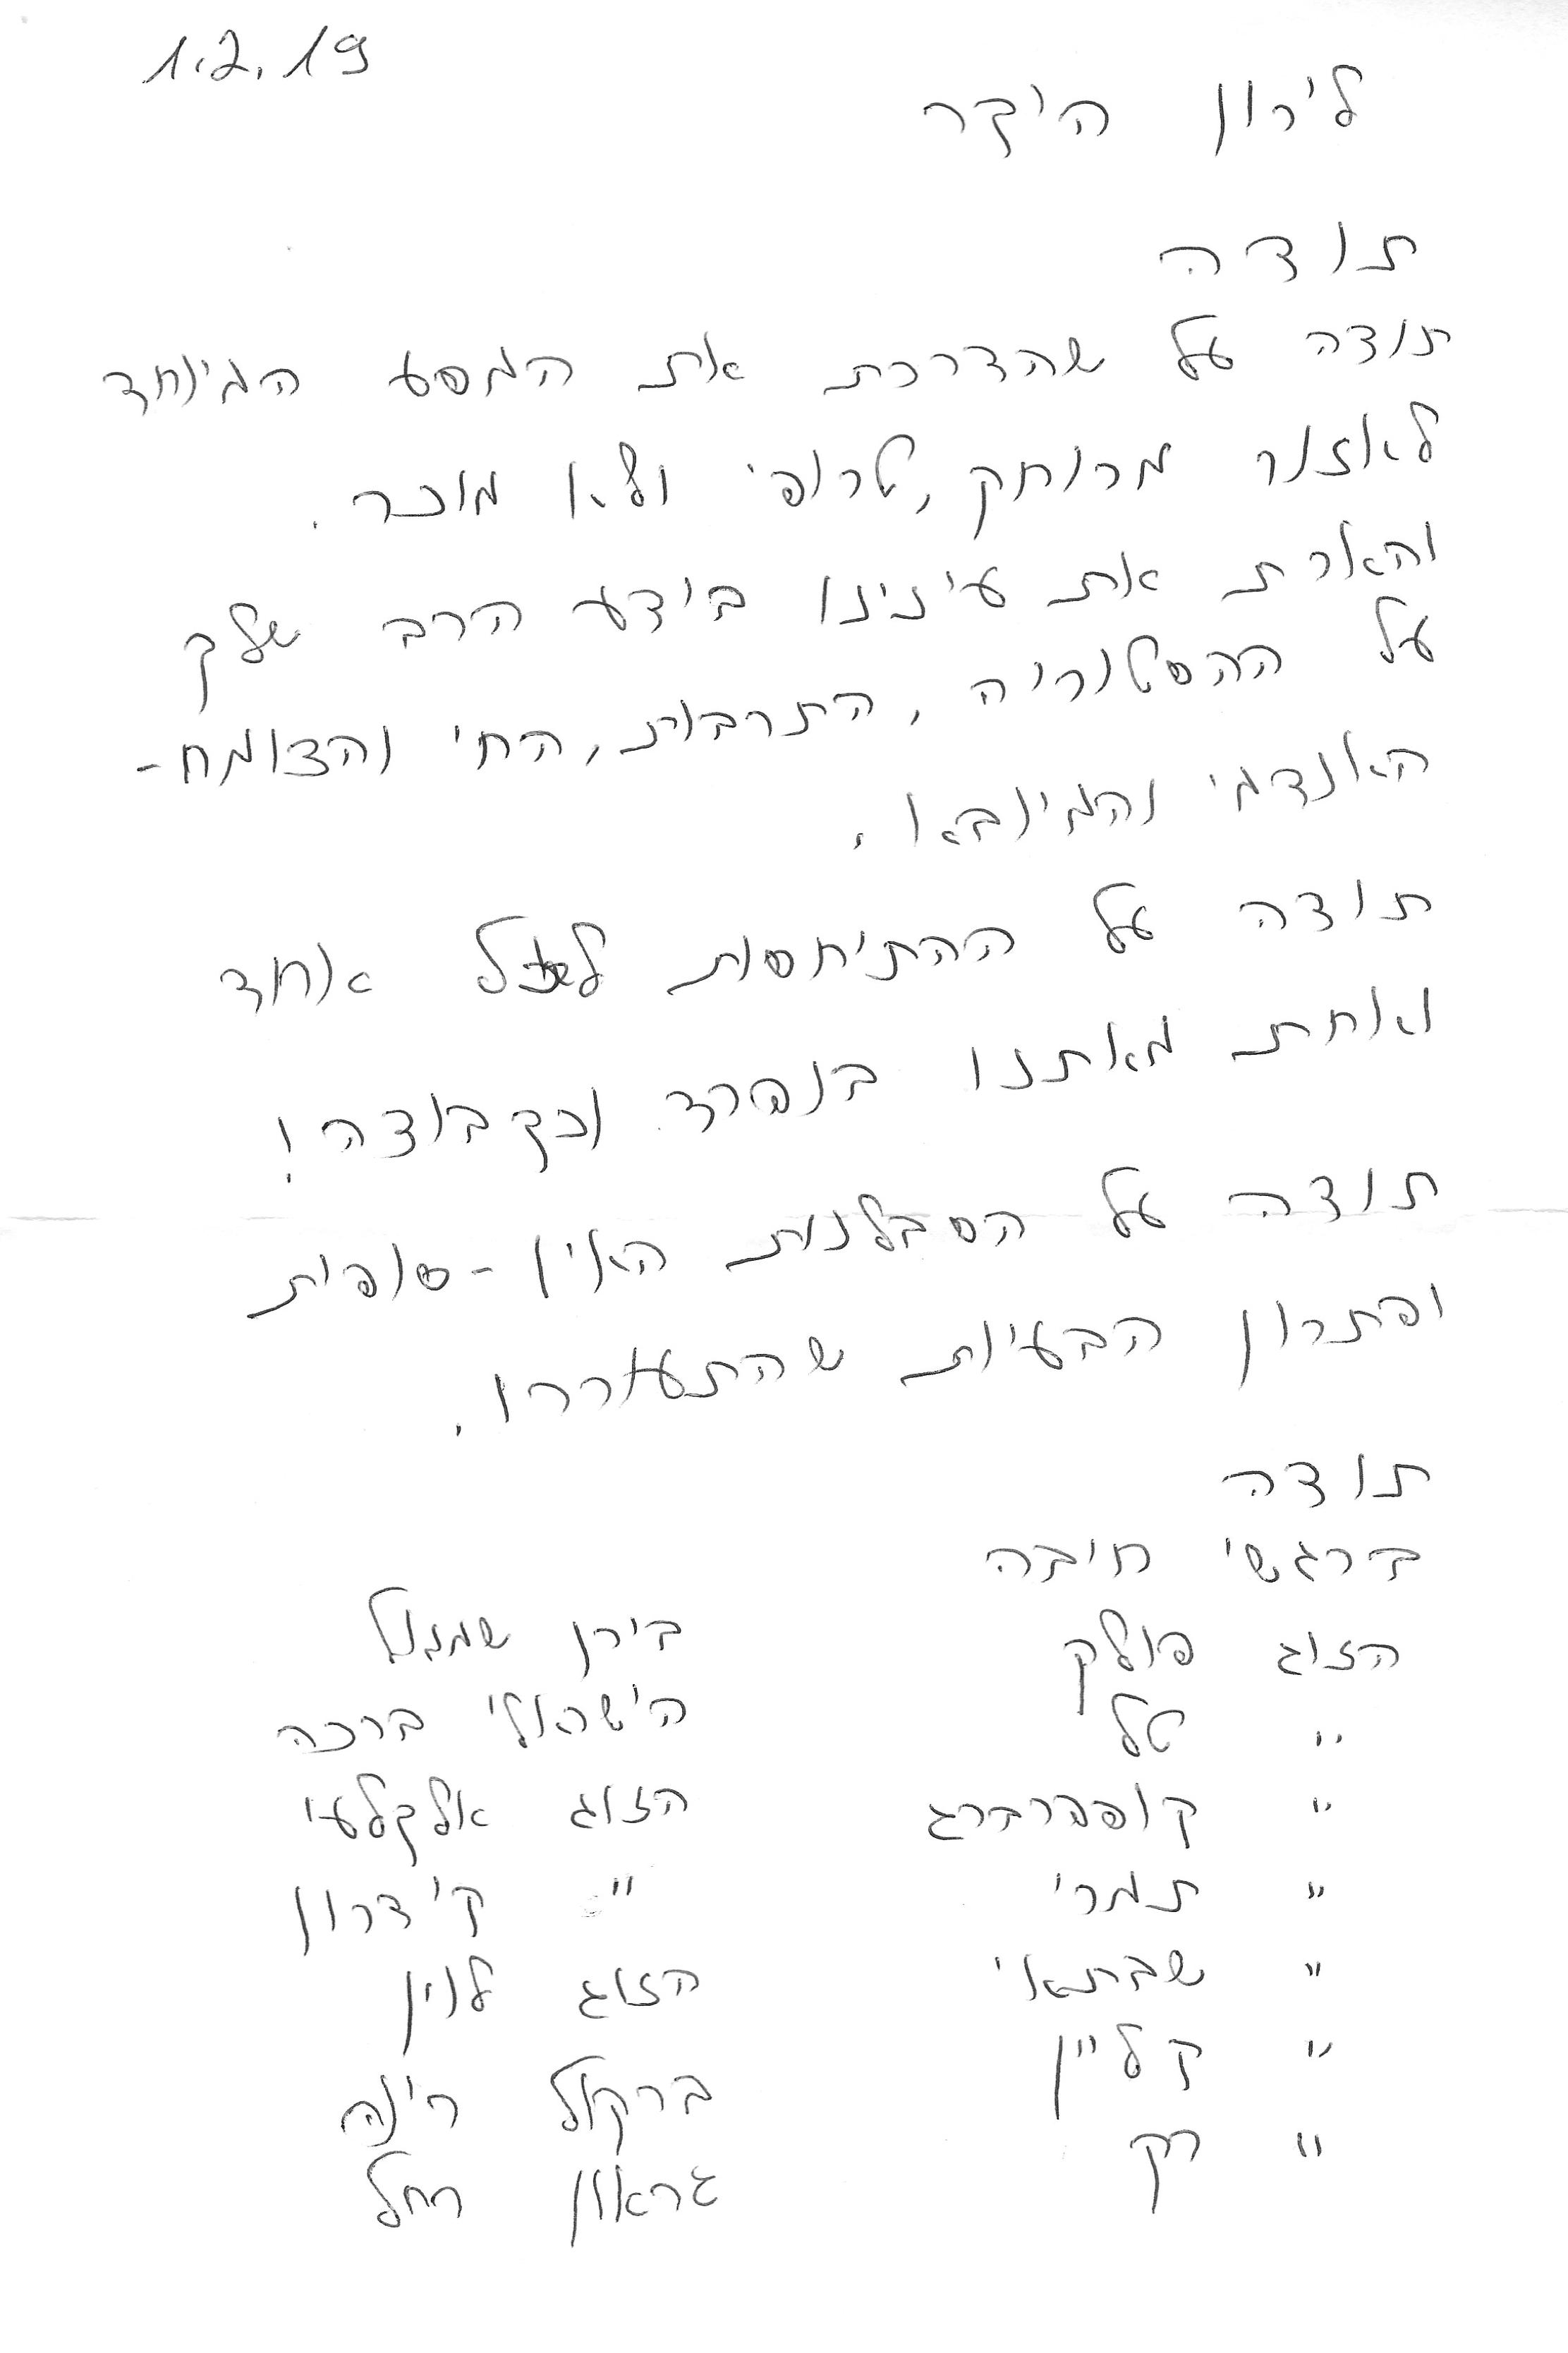 1.2.19
לירון היקר
תודה
תודה על שהדרכת את המסע המיוחד
לאזור מרוחק, טרופי ולא מוכר.
והארת את עינינו בידע הרב שלך
על ההסטוריה, התרבות, החי והצומח-
האנדמי והמיובא.
תודה על ההתיחסות לכל אחד
ואחת מאתנו בנפרד וכקבוצה!
תודה על הסבלנות האין-סופית
ופתרון הבעיות שהתעוררו.
תודה
ברגשי חיבה
הזוג פולק
" טל
" קופפרברג
" תמרי
" שבתאי
" קליין
" רק
בירן שמואל
הישראלי ברכה
הזוג אלקלעי
" קידרון
הזוג לוין
ברקול רינה
גראון רחל